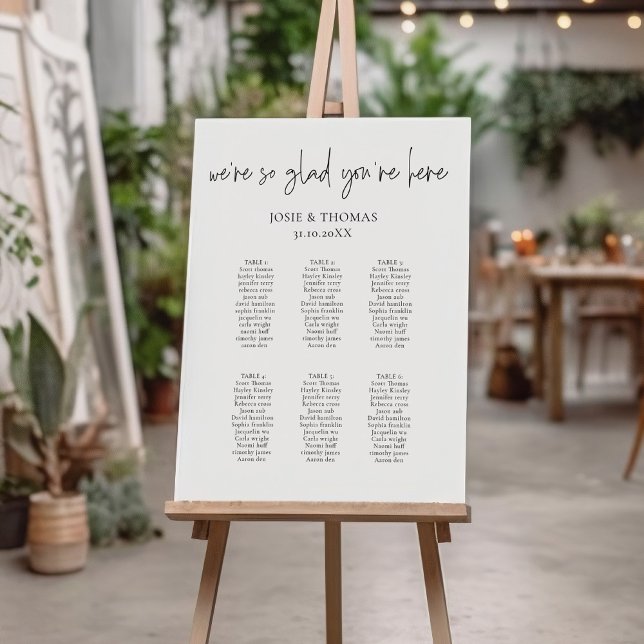 we're so glad you're here
JOSIE & THOMAS
31.10.20XX
TABLE 1:
Scott Thomas
hayley Kinsley
Jennifer terry
Rebecca cross
Jason aub
david hamilton
sophia franklin
jacquelin wu
carla wright
Naomi huff
timothy james
Aaron den
TABLE 2:
Scott Thomas
Hayley Kinsley
Jennifer terry
Rebecca cross
Jason aub
David hamilton
Sophia franklin
Jacquelin wu
Carla wright
Naomi huff
timothy james
Aaron den
TABLE 3:
Scott Thomas
Hayley Kinsley
Jennifer terry
Rebecca cross
Jason aub
David hamilton
Sophia franklin
Jacquelin wu
Carla wright
Naomi huff
timothy james
Aaron den
TABLE 4:
Scott Thomas
Hayley Kinsley
Jennifer terry
Rebecca cross
Jason aub
David hamilton
Sophia franklin
Jacquelin wu
Carla wright
Naomi huff
timothy james
Aaron den
TABLE 5:
Scott Thomas
Hayley Kinsley
Jennifer terry
Rebecca cross
Jason aub
David hamilton
Sophia franklin
Jacquelin wu
Carla wright
Naomi huff
timothy james
Aaron den
TABLE 6:
Scott Thomas
Hayley Kinsley
Jennifer terry
Rebecca cross
Jason aub
David hamilton
Sophia franklin
Jacquelin wu
Carla wright
Naomi huff
timothy james
Aaron den